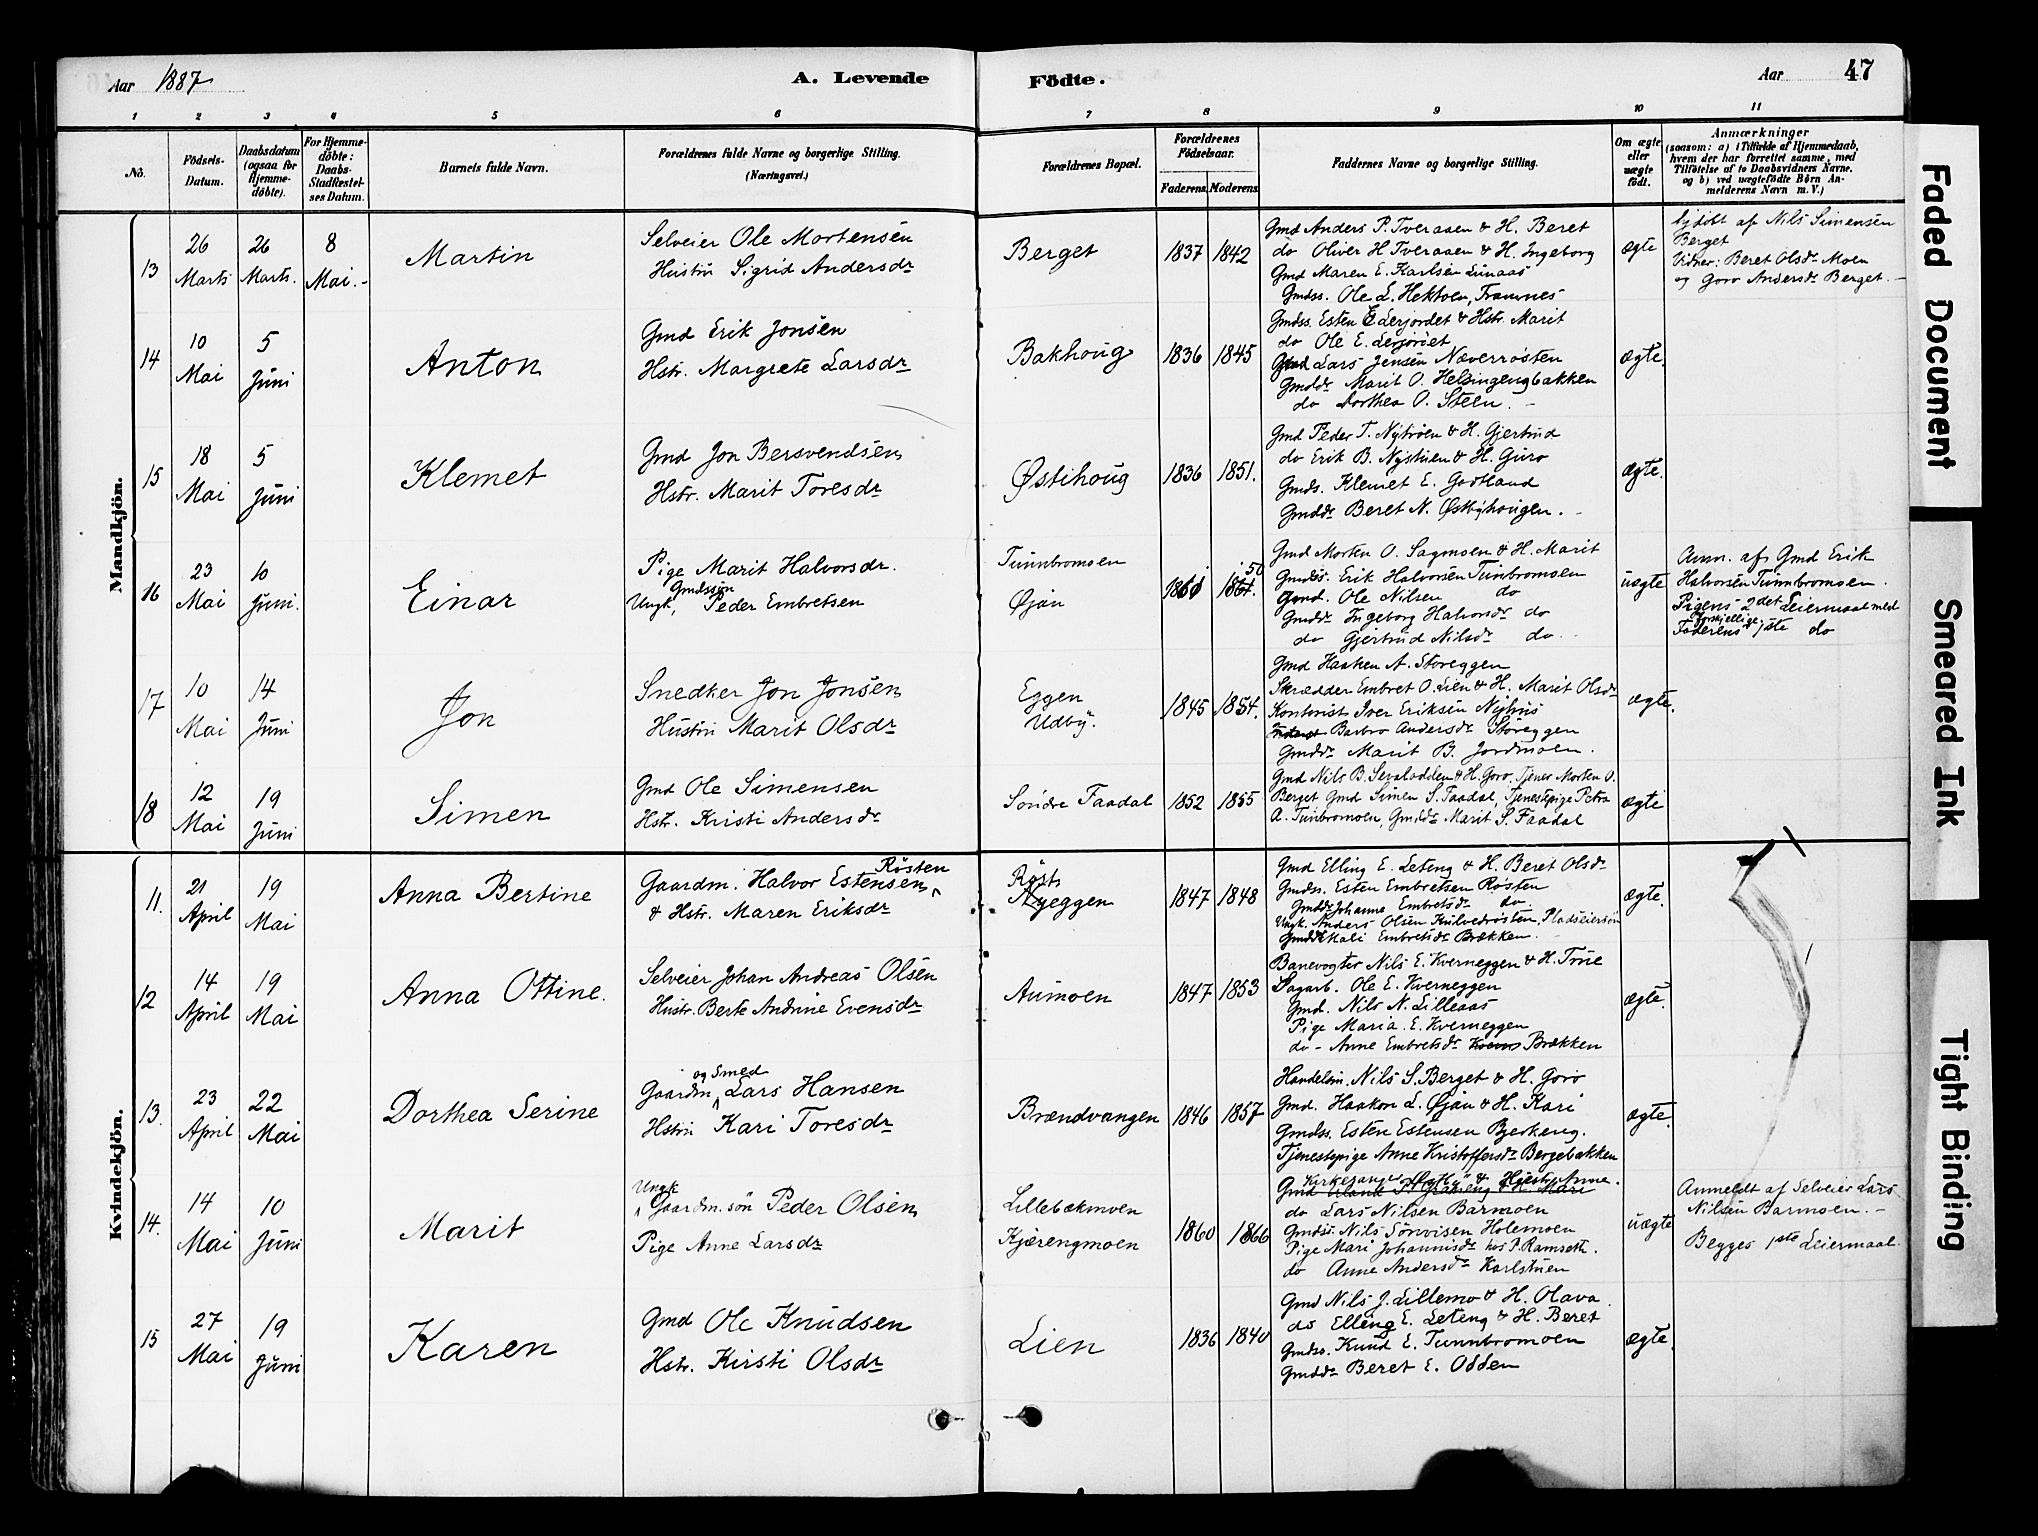 Aar 1887
A. Levende
Födte.
Aar
47
1 2 3 4 5 6 7 8 9 10 11
No.
Födsels-Datum.
Daabsdatum (ogsaa for Hjemme-döbte).
For Hjemme-döbte: Daabs-Stadfæstel-ses Datum.
Barnets fulde Navn.
Forældrenes fulde Navne og borgerlige Stilling. (Næringsvei.)
Forældrenes Bopæl.
Forældrenes Födselsaar.
Faderens. Moderens.
Faddernes Navne og borgerlige Stilling.
Om ægte eller uægte födt.
Anmærkninger
(saasom: a) i Tilfælde af Hjemmedaab,
hvem der har forrettet samme, med
Tilföielse af to Daabsvidners Navne,
og b) ved uægtefödte Börn An-
melderens Navn m. V.)
Mandkjön.
13
26 Marts
26 Marts.
8 Mai.-
Martin
Selveier Ole Mortensen
Hustru Sigrid Andersdr
Berget
1837 1842
Gmd Anders P. Tveraaen & H. Beret
do Oliver H Tveraaen & H. Ingeborg
Gmd Maren E. Karlsen Lunaas
Gmdss. Ole L. Hektoen, Framnes
ægte
hjdöbt af Nils Simensen
Berget
Vidner: Beret Olsdr Moen
og Goro Andersdr Berget.-
14
10 Mai
5 Juni
Anton
Gmd Erik Jonsen
Hstr. Margrete Larsdr
Bakhoug
1836 1845
Gmdss. Esten E Lerjordet & Hstr. Marit
do Ole E. Lerjordet
Gmd Lars Jensen Næverrösten
Gmddr Marit O. Helsingengbakken
do Dorthea O. Steen.-
ægte.
15
18 Mai
5 Juni
Klemet
Gmd Jon Bersvendsen
Hstr. Marit Toresdr
Østihoug
1836 1851.
Gmd Peder T. Nytröen & H. Gjertrud
do Erik B. Nystuen & H. Guro
Gmds. Klemet E. Godtland
Gmddr Beret N. Østbyhougen.-
ægte.
16
23 Mai
10 Juni.
Einar
Pige Marit Halvorsdr.
Gmdssön
Ungk. Peder Embretsen
Tunnbromoen
Øjan
Gmd Morten O. Sagmoen & H. Marit
Gmdss. Erik Halvorsen Tunbromoen
Gmd. Ole Nilsen do
Gmddr Ingeborg Halvorsdr do
do Gjertrud Nilsdr do.
uægte
Anm. af Gmd Erik
Halvorsen Tunnbromoen.
Pigens 2det Leiermaal med
forskjellige
Faderens 1ste do
17
10 Mai
14 Juni
Jon
Snedker Jon Jonsen
Hustru Marit Olsdr
Eggen
Udby.
1845 1854.
Gmd Haaken A. Storeggen
Skrædder Embret O. Lien & H. Marit Olsdr
Kontorist Iver Eriksen Nyhus
Barbro Andersdr Storeggen
Gmddr Marit B. Jordmoen.
ægte.
18
12 Mai
19 Juni
Simen
Gmd Ole Simensen
Hstr. Kristi Andersdr
Söndre Faadal
1852 1855
Gmd Nils B. Sevaladden & H. Goro, Tjener Morten O.
Berget, Gmd Simen S. Faadal, Tjenestepige Petra
A. Tunbromoen, Gmddr Marit S. Faadal
ægte
Kvindekjön.
11.
21 April
19 Mai
Anna Bertine
Rösten
Gaardm. Halvor Estensen
& Hstr. Maren Eriksdr
Röst
Nyeggen
1847 1848
Gmd Elling E. Leteng & H. Beret Olsdr
Gmdss. Esten Embretsen Rösten
Gmddr Johanne Embretsdr do
Ungk. Anders Olsen Kulvedrösten, Pladseiersön
Gmddr Mali Embretsdr Brækken.
ægte.
12
14 April
19 Mai
Anna Ottine.
Selveier Johan Andreas Olsen
Hustr. Berte Andrine Evensdr
Aumoen
1847 1853
Banevogter Nils E. Kverneggen & H. Trine
Sagarb. Ole E. Kverneggen
Gmd. Nils N. Lilleaas
Pige Maria E. Kverneggen
do - Anne Embretsdr Brækken
ægte.
13.
23 April
22 Mai
Dorthea Serine
og Smed
Gaardm Lars Hansen
Hstru Kari Toresdr
Brændvangen
1846 1857
Handelsm. Nils S. Berget & H. Goro
Gmd. Haakon L. Øjan & H. Kari
Gmdss. Esten Estensen Bjerkeng.
Tjenestepige Anne Kristoffersdr Bergebakken
ægte.
14.
14 Mai
10 Juni
Marit
Ungk
Gaardm.sön Peder Olsen
Pige Anne Larsdr
Lillebækmoen
Kjærengmoen
1860 1866
do Lars Nilsen Barmoen
Gmdss. Nils Sörvisen Holemoen
Pige Mari Johannisdr hos P. Ramseth.
do Anne Andersdr Karlstuen
uægte
Anmeldt af Selveier Lars
Nilsen Barmoen.-
Begges 1ste Leiermaal.
15
27 Mai
19 Juni
Karen
Gmd Ole Knudsen
Hstr. Kirsti Olsdr
Lien
1836 1840
Gmd Nils J. Lillemo & H. Olava.
do Elling E. Leteng & H. Beret
Gmdss. Knud E. Tunnbromoen
Gmddr Beret E. Odden
ægte.
Faded Document
Smeared Ink
Tight Binding